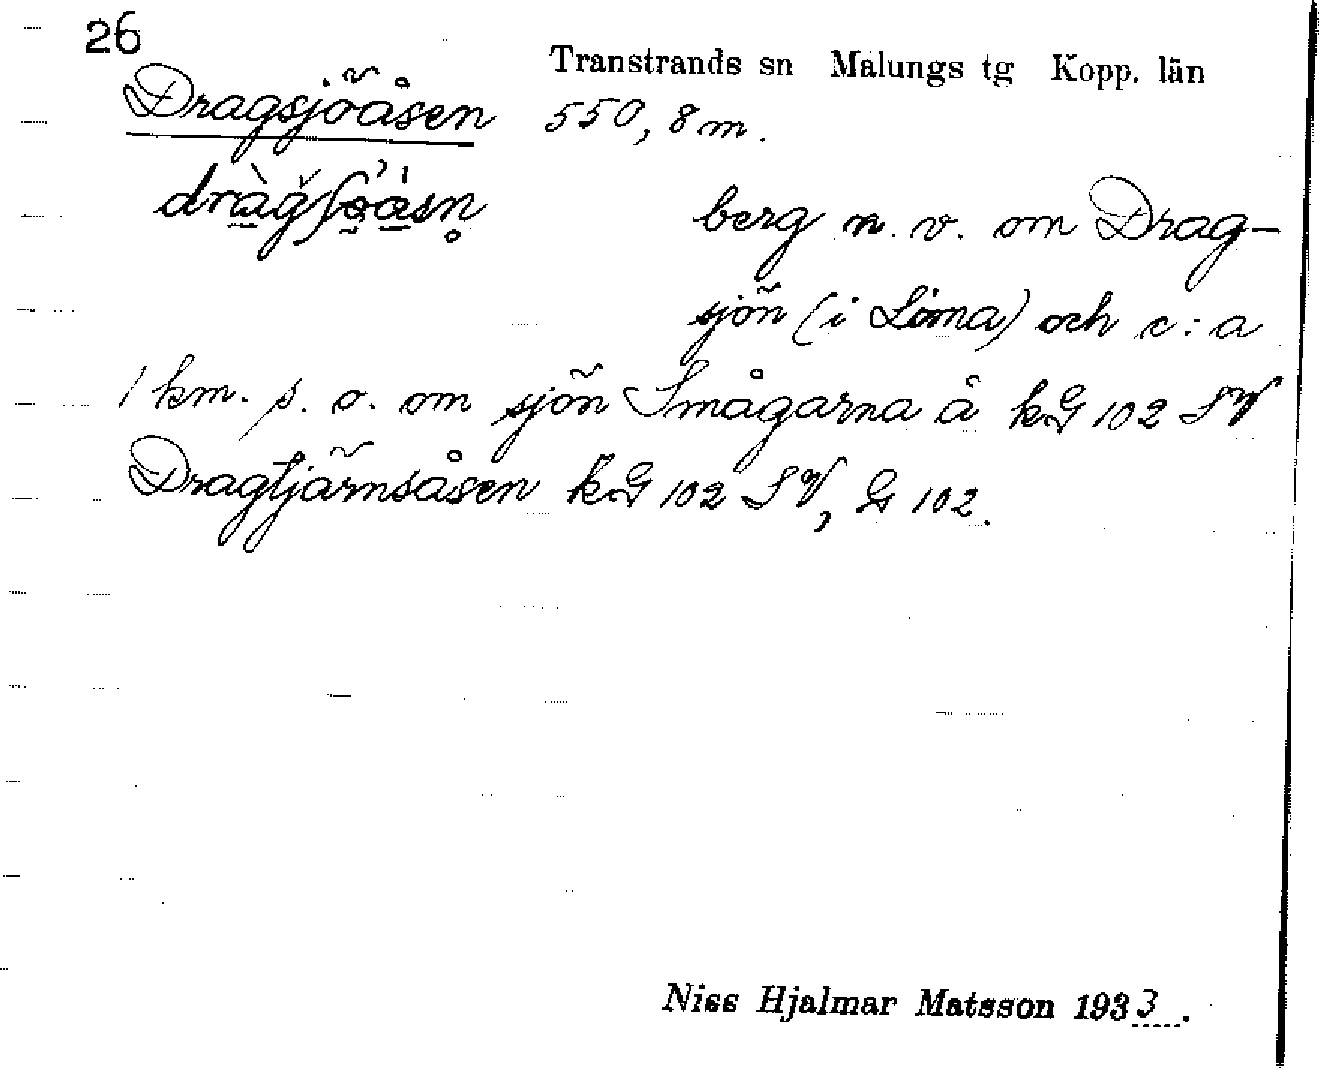 26
Transtrands sn Malungs tg Kopp. län
Dragsjöåsen 550,8 m.
berg n. v. om Drag-
sjön (i Lima) och c:a
1 km. s. o. om sjön Smågarna å kG 102 SV
Dragtjärnsåsen kG 102 SV, G 102.
Niss Hjalmar Matsson 1933.